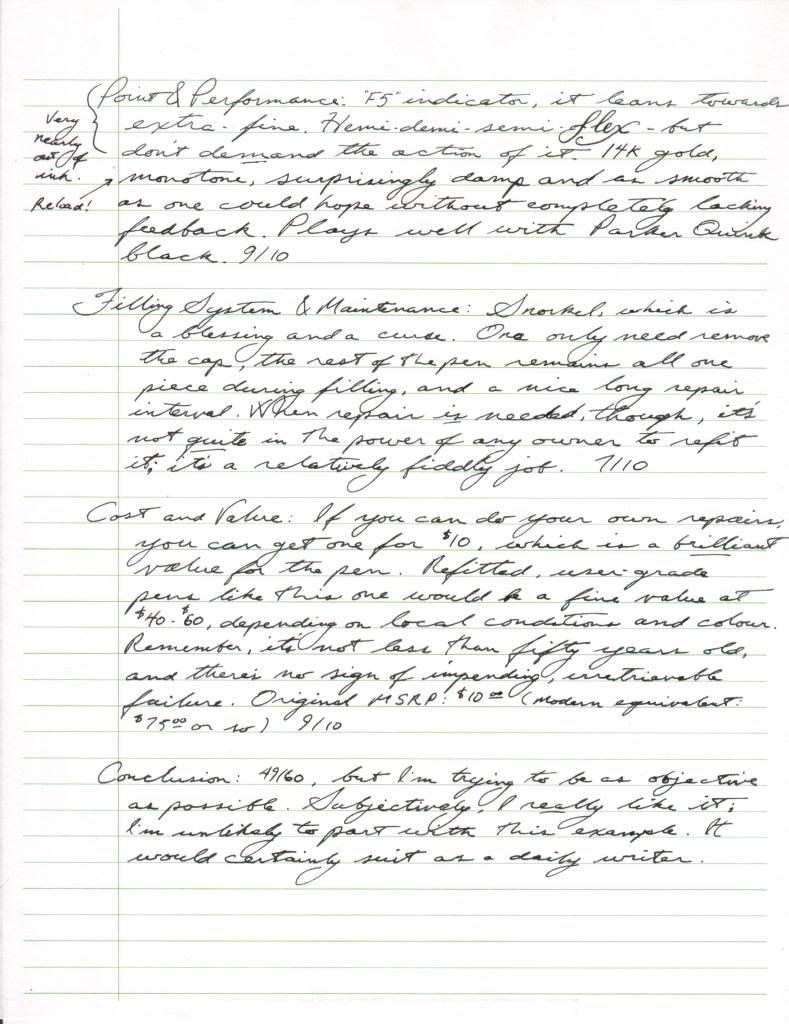 Point & Performance: "F5" indicator, it leans towards
extra-fine. Hemi-demi-semi-flex - but
don't demand the action of it. 14K gold,
monotone, surprisingly damp and as smooth
as one could hope without completely lacking
feedback. Plays well with Parker Quink
black. 9/10
Very
nearly
out of
ink.
Reload!
Filling System & Maintenance: Snorkel, which is
a blessing and a curse. One only need remove
the cap, the rest of the pen remains all one
piece during filling, and a nice long repair
interval. When repair is needed, though, it's
not quite in the power of any owner to refit
it; it's a relatively fiddly job. 7/10
Cost and Value: If you can do your own repairs,
you can get one for $10, which is a brilliant
value for the pen. Refitted, user-grade
pens like this one would be a fine value at
$40-$60, depending on local conditions and colour.
Remember, it's not less than fifty years old,
and there's no sign of impending, irretrievable
failure. Original MSRP: $10.00 (Modern equivalent:
$75.00 or so) 9/10
Conclusion: 49/60, but I'm trying to be as objective
as possible. Subjectively, I really like it;
I'm unlikely to part with this example. It
would certainly suit as a daily writer.